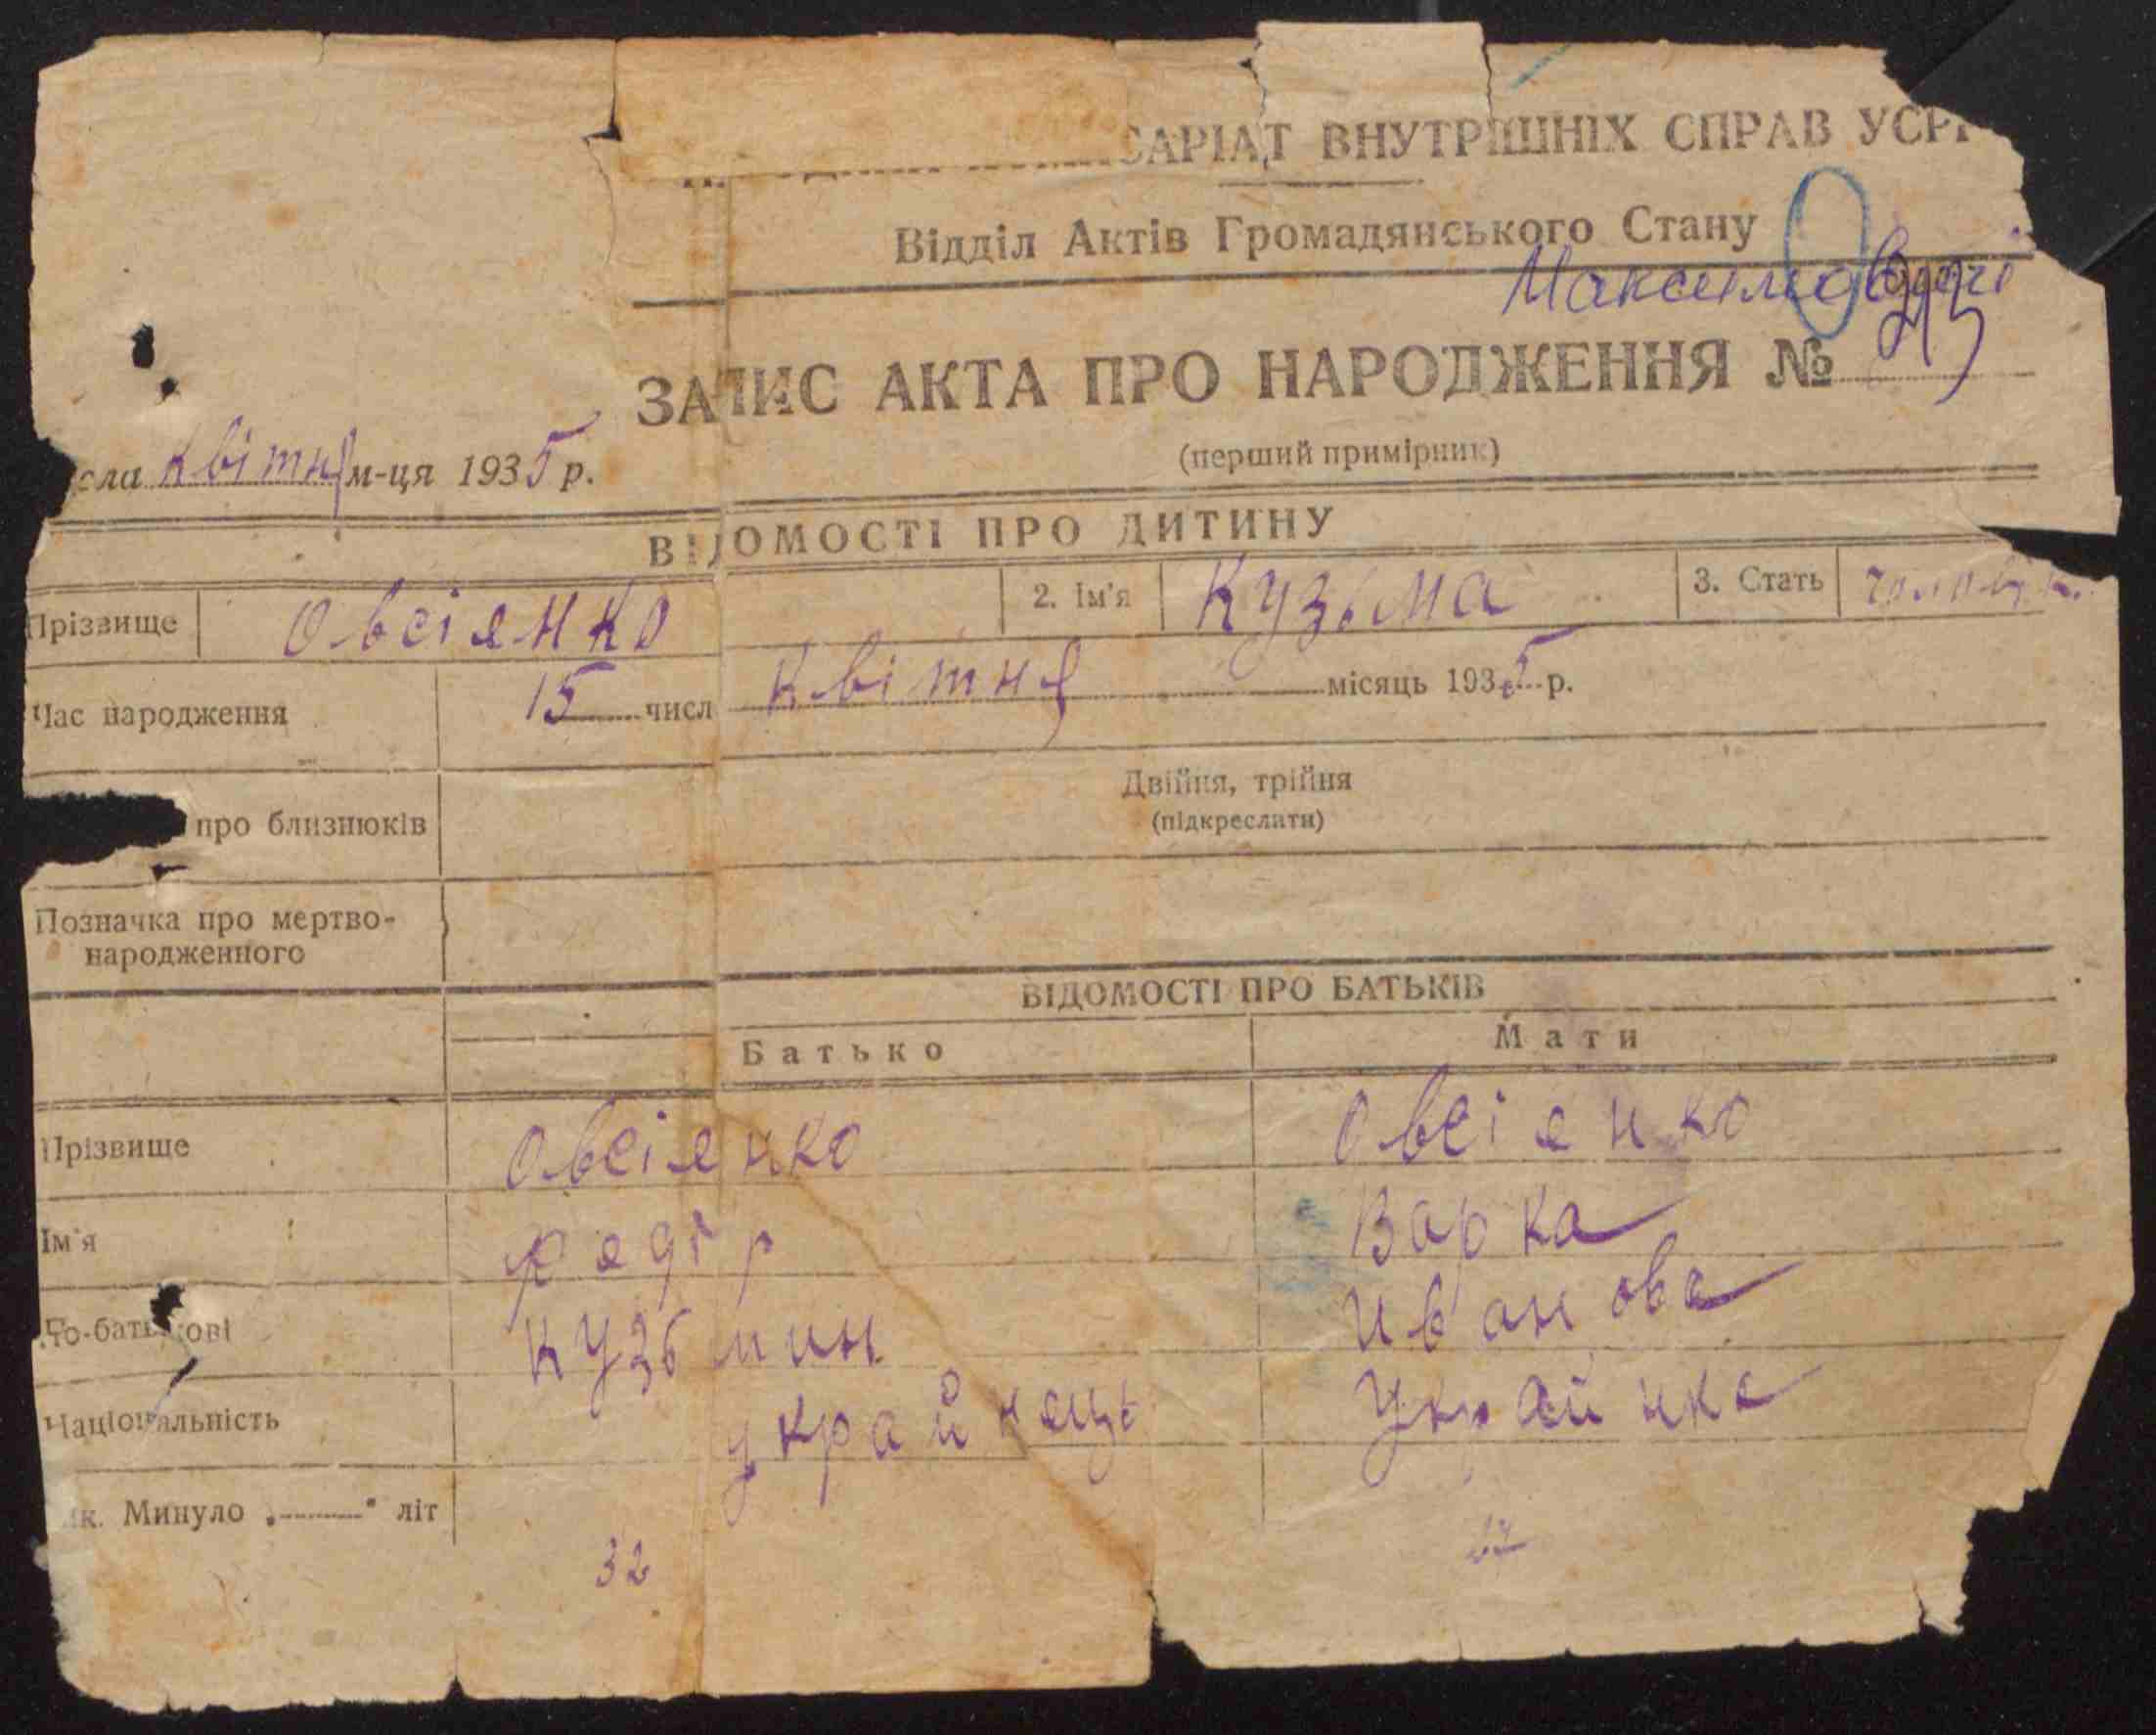 САРІАТ ВНУТРІШНІХ СПРАВ УСРР
Відділ Актів Громадянського Стану
ЗАПИС АКТА ПРО НАРОДЖЕННЯ №
(перший примірник)
сла квітня м-ця 1935 р.
ВІДОМОСТІ ПРО ДИТИНУ
Прізвище Овсіянко 2. Ім'я Кузьма 3. Стать
Час народження 15 числ квітня місяць 1935 р.
про близнюків Двійня, трійня
(підкреслати)
Позначка про мертво-
народженного
ВІДОМОСТІ ПРО БАТЬКІВ
Батько Мати
Прізвище Овсіянко Овсіянко
Ім'я Варка
По-батькові Кузьмин Иванова
Національність украйнець Украйнка
ік. Минуло „-------" літ
32